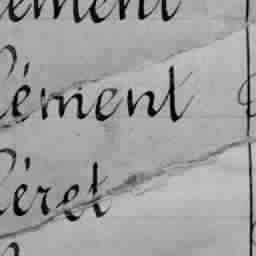 ément
lément
léret